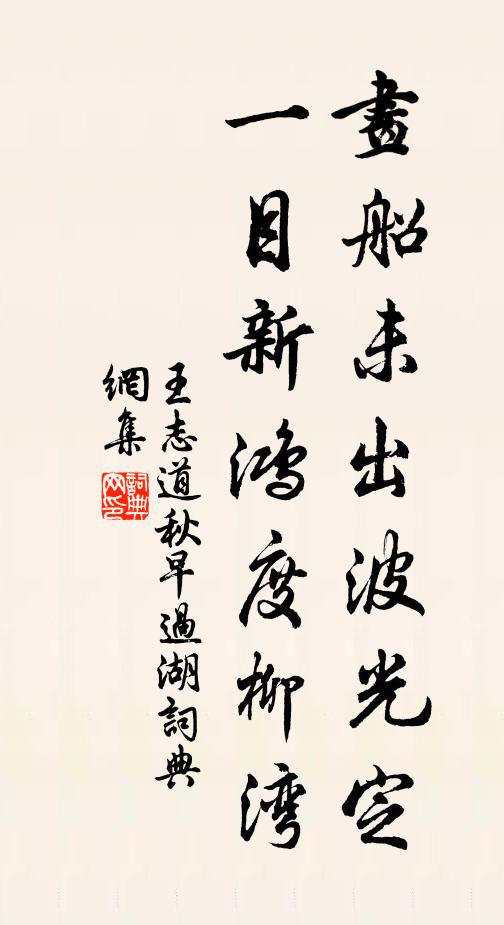 畫船未出波光定
一目新鴻度柳湾
王志道秋早過湖詞典
網集
詞典
网印